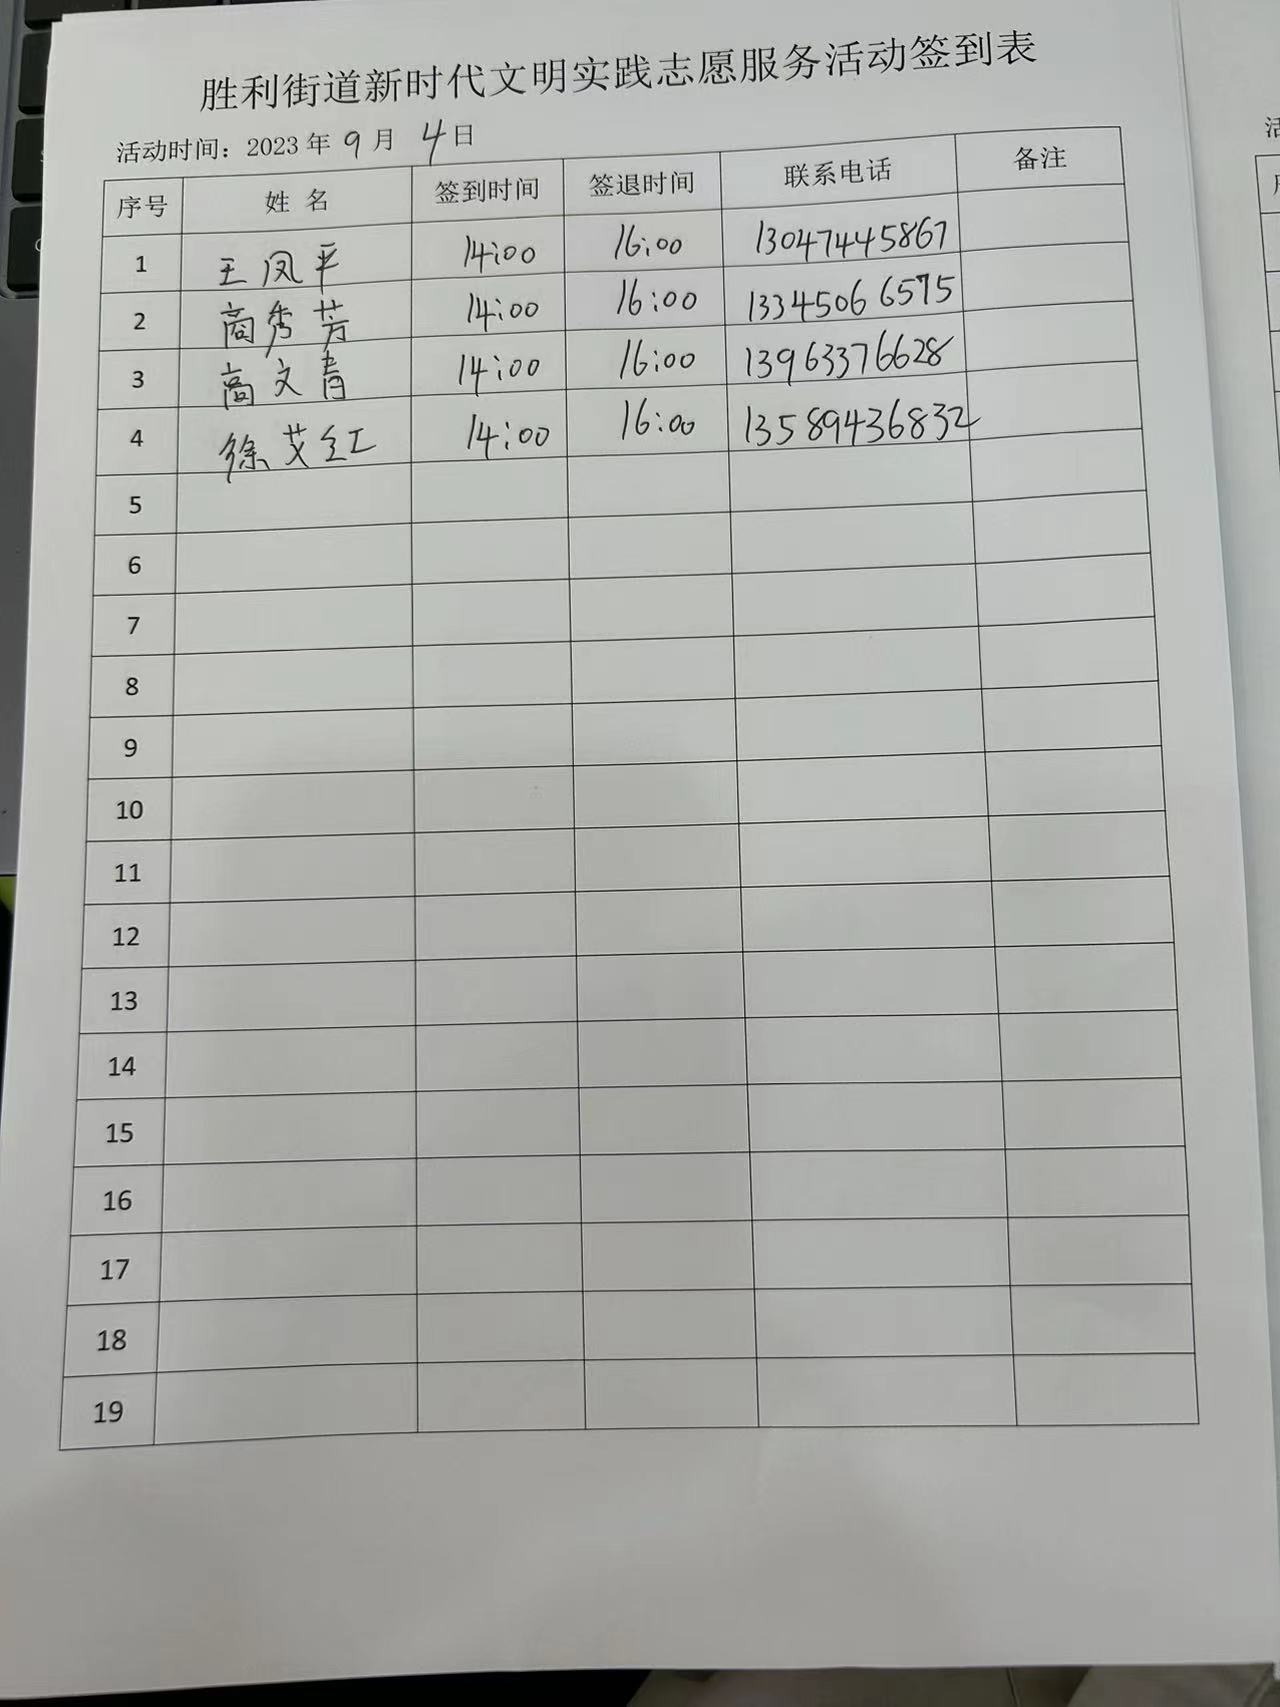 胜利街道新时代文明实践志愿服务活动签到表
活动时间：2023年9月4日
序号 姓名 签到时间 签退时间 联系电话 备注
1 王凤平 14:00 16:00 13047445867
2 商秀芳 14:00 16:00 13345066575
3 高文青 14:00 16:00 13963376628
4 徐艾红 14:00 16:00 13589436832
5
6
7
8
9
10
11
12
13
14
15
16
17
18
19